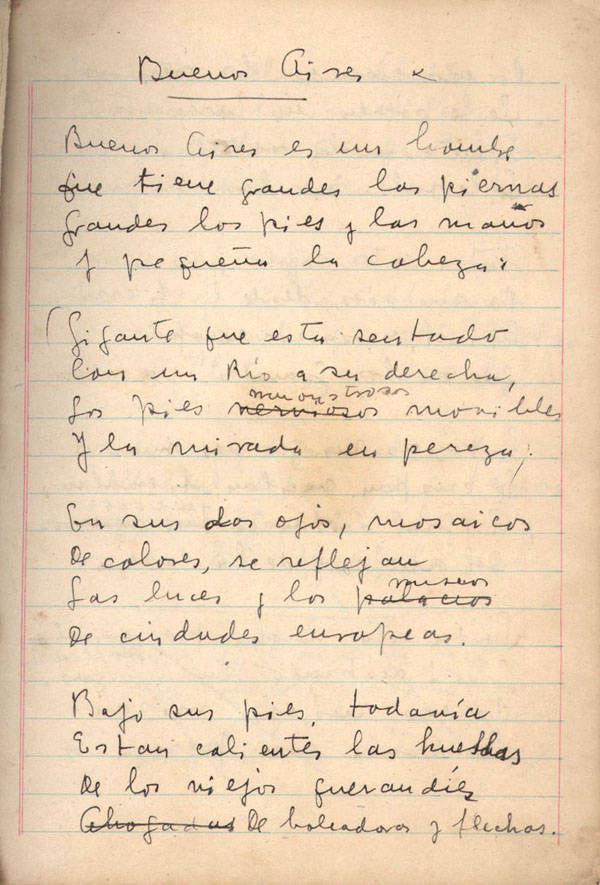 Buenos Aires x
Buenos Aires es un hombre
Que tiene grandes las piernas
Grandes los pies y las manos
Y pequeña la cabeza.
(Gigante que esta sentado
Con un Rio a su derecha,
Los pies nerviosos monstrosos movibles
Y la mirada en pereza;
En sus dos ojos, mosaicos
De colores, se reflejan
Las luces y los palacios museos
De ciudades europeas.
Bajo sus pies, todavía
Estan calientes las huellas
De los viejos querandíes
Ahogadas De boleadoras y flechas.